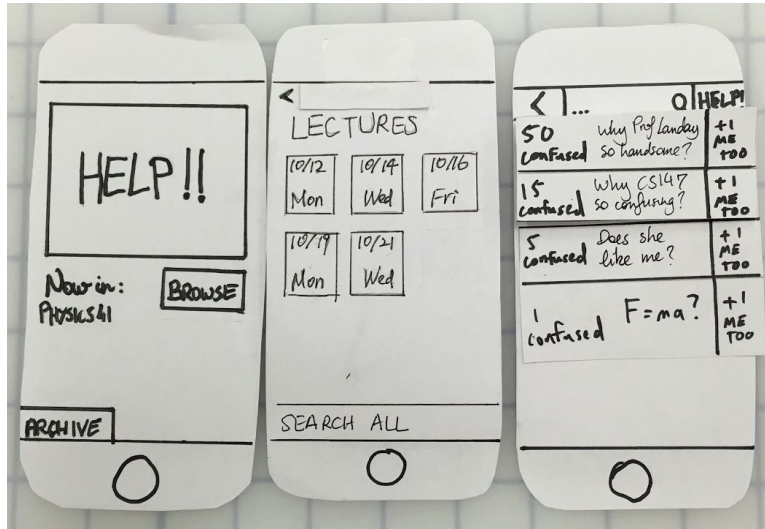 HELP!!
Now in:
PHYSICS41
BROWSE
ARCHIVE
<
LECTURES
10/12
Mon
10/14
Wed
10/16
Fri
10/19
Mon
10/21
Wed
SEARCH ALL
< ... HELP!
50
confused
Why Prof Landay
so handsome?
+1
ME
TOO
15
confused
Why CS147
so confusing?
+1
ME
TOO
5
confused
Does she
like me?
+1
ME
TOO
1
confused
F=ma?
+1
ME
TOO